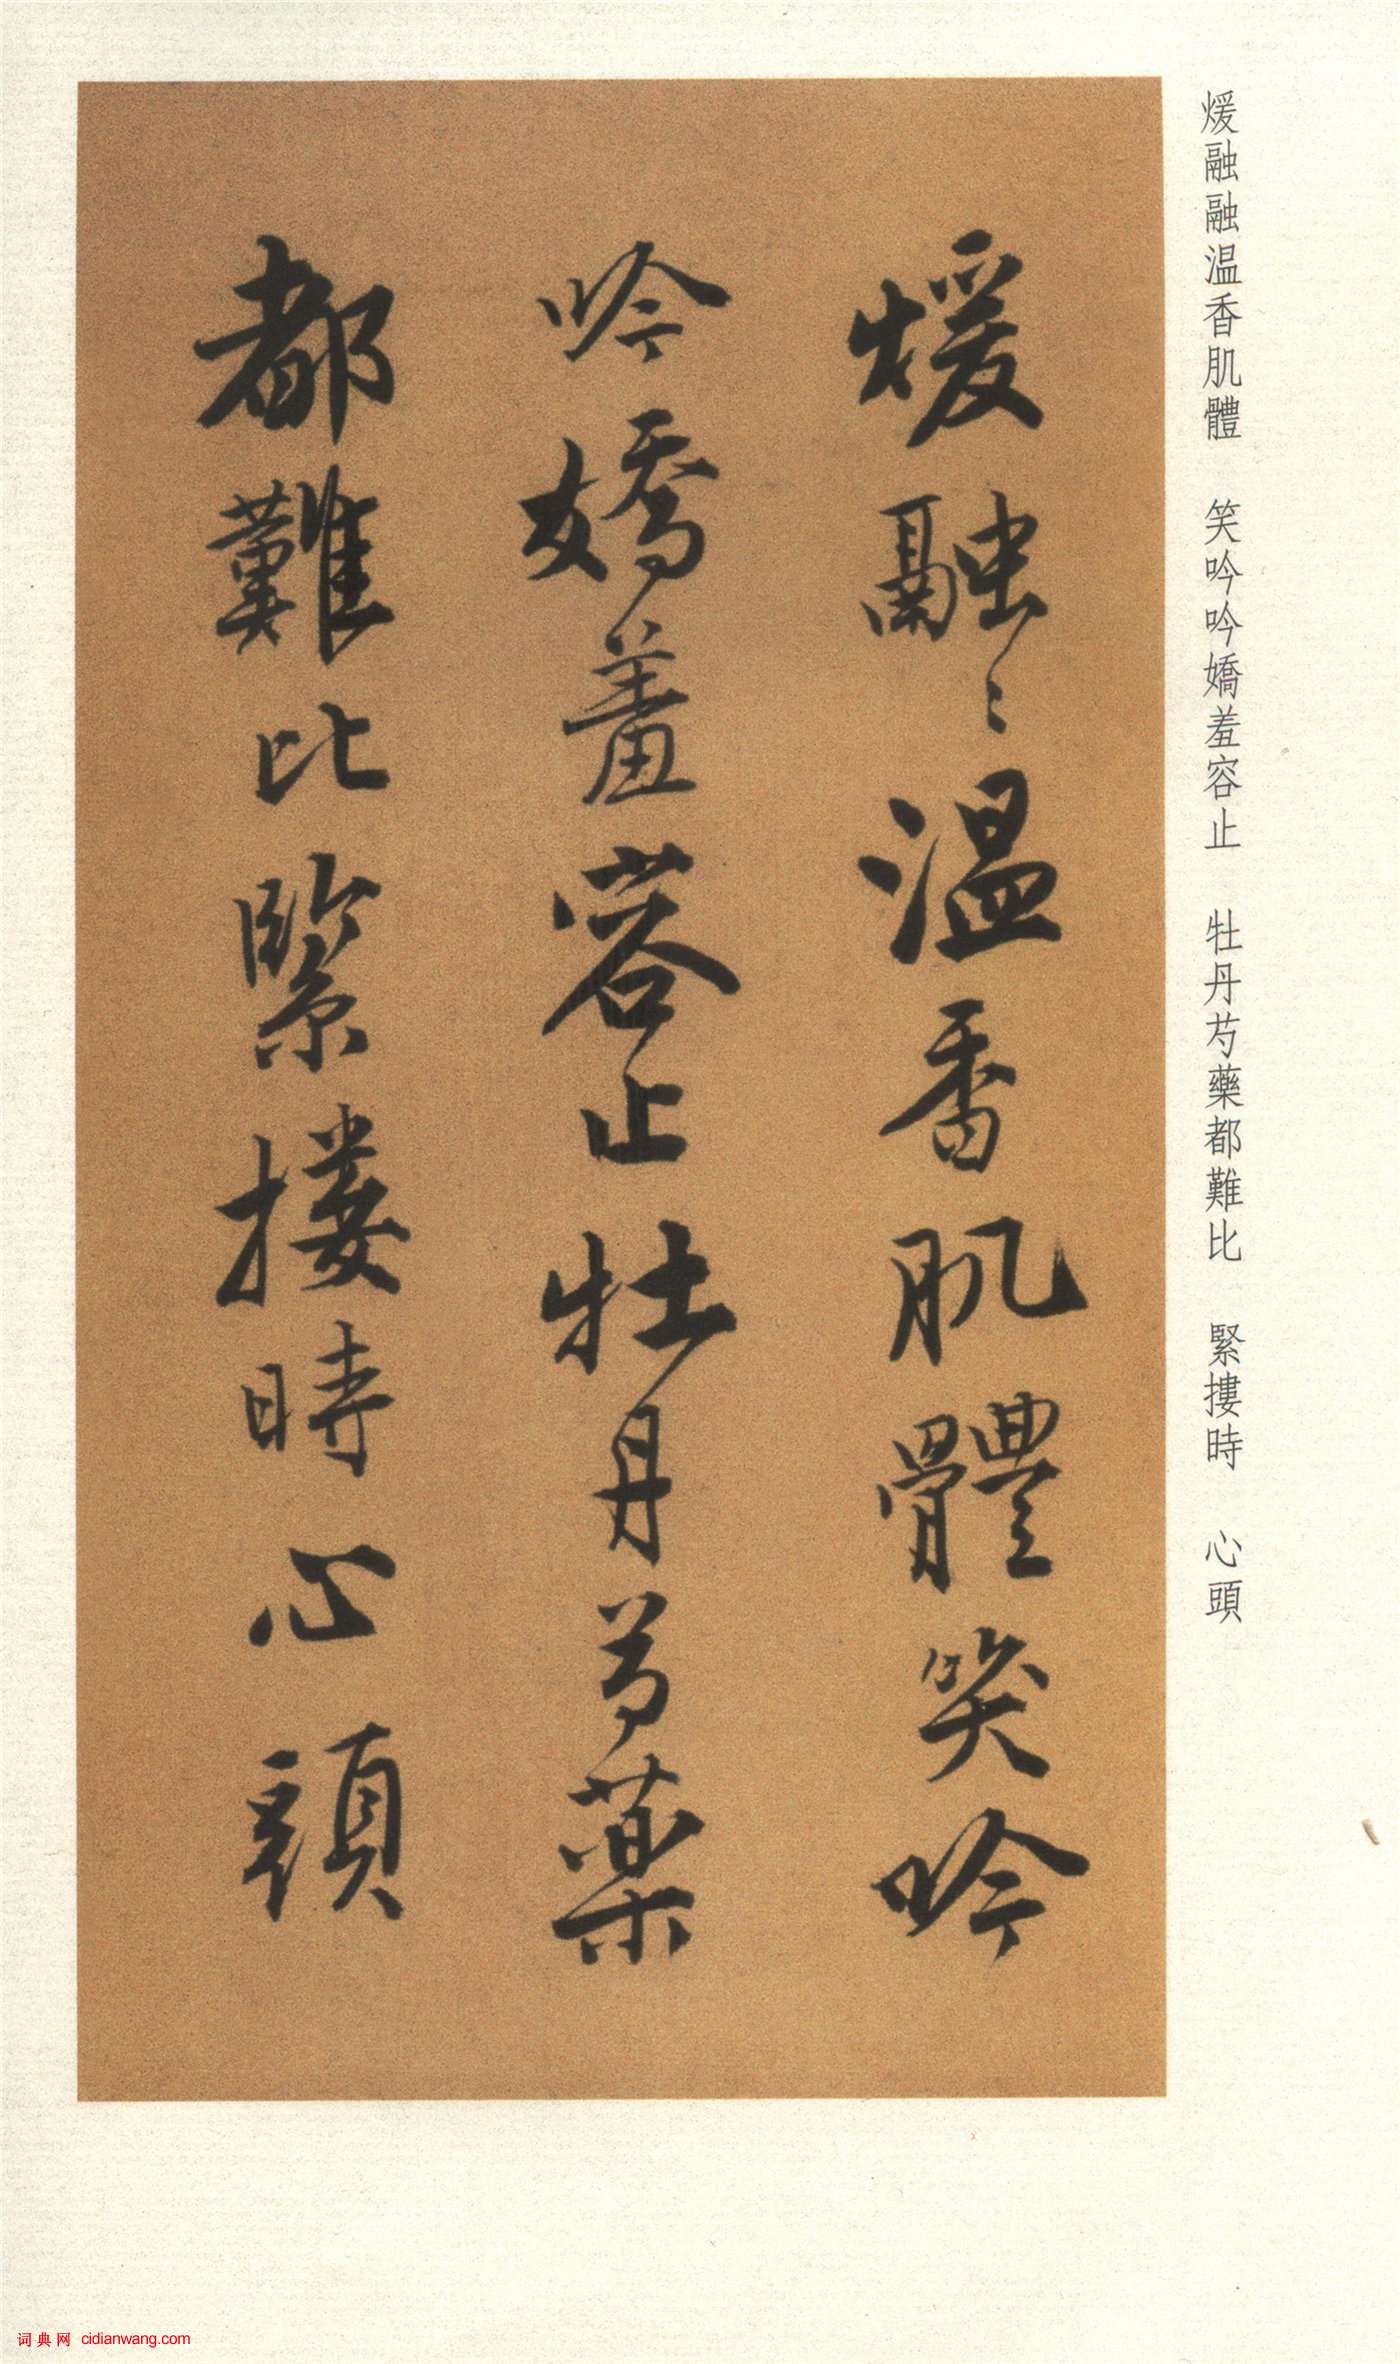 煖融融温香肌體　笑吟吟嬌羞容止　牡丹芍藥都難比　緊摟時　心頭
煖融〻温香肌體笑吟
吟嬌羞容止牡丹芍藥
都難比緊摟時心頭
词典网 cidianwang.com